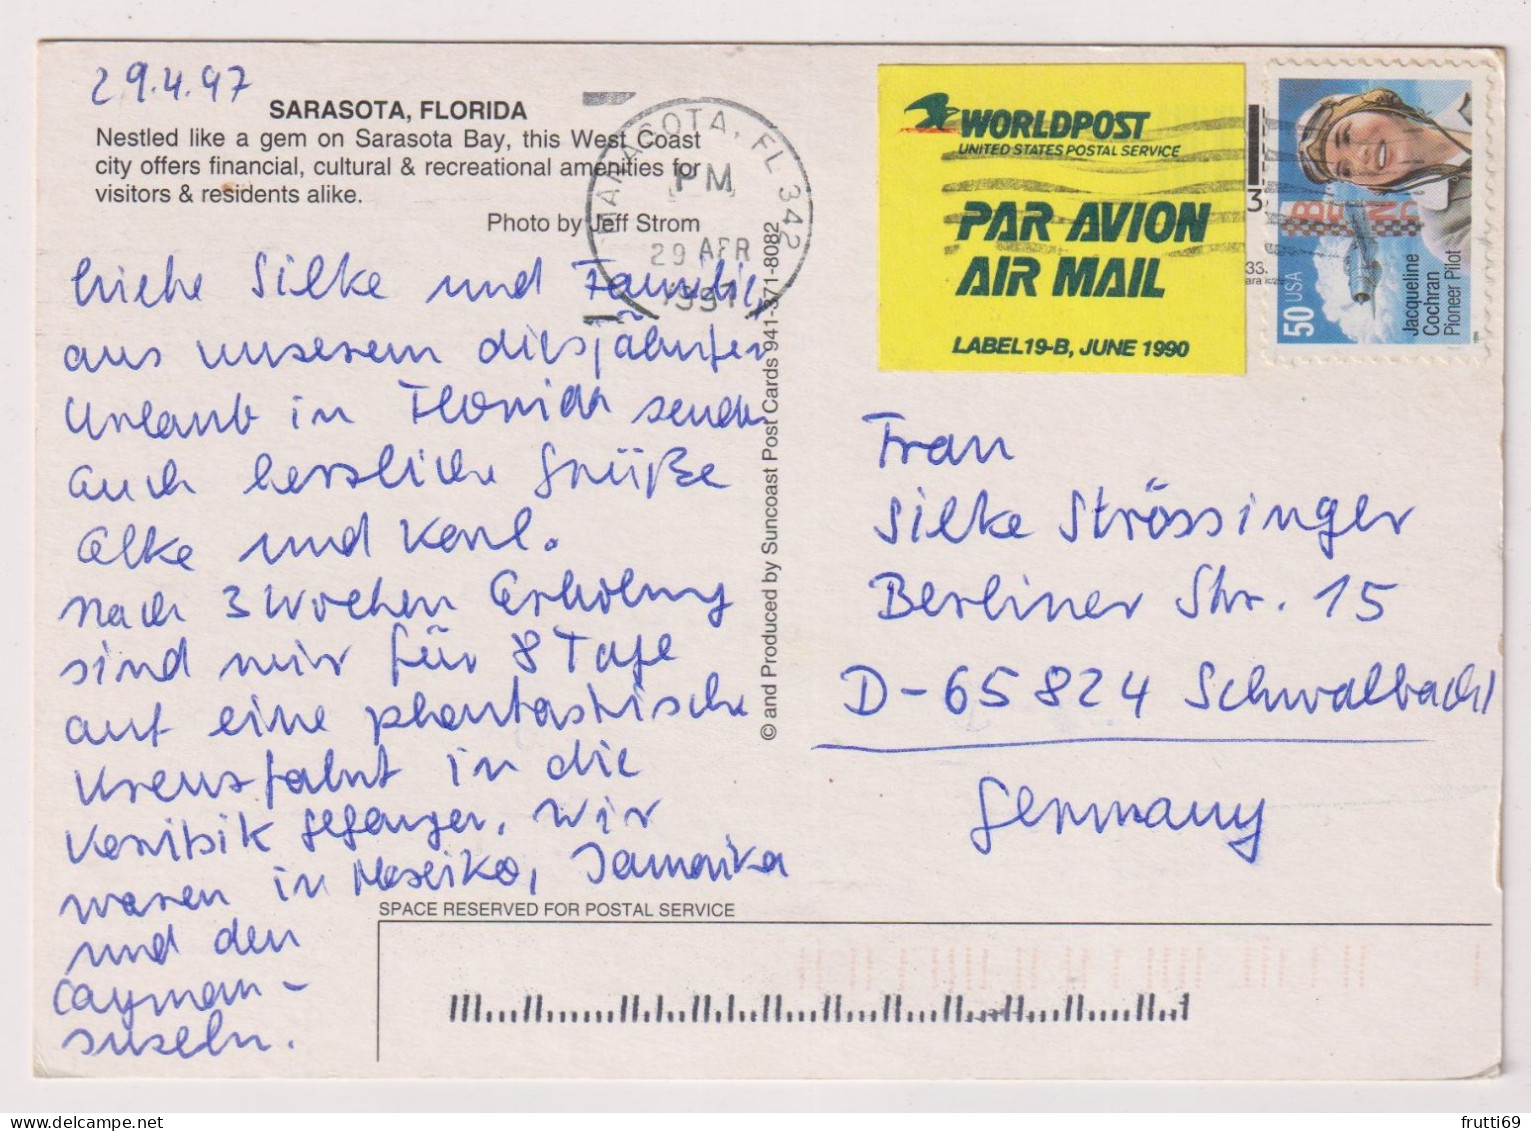 29.4.97
SARASOTA, FLORIDA
Nestled like a gem on Sarasota Bay, this West Coast
city offers financial, cultural & recreational amenities for
visitors & residents alike.
Photo by Jeff Strom
Liebe Silke und Familie,
aus unserem diesjährigen
Urlaub in Florida senden
auch herzliche Grüße
Elke und Karl.
Nach 3 Wochen Erholung
sind wir für 8 Tage
auf eine phantastische
Kreuzfahrt in die
Karibik gegangen. Wir
waren in Mexiko, Jamaika
und den
Cayman-
inseln.
© and Produced by Suncoast Post Cards 941-371-8082
SARASOTA, FL 342
PM
29 APR
1997
WORLDPOST
UNITED STATES POSTAL SERVICE
PAR AVION
AIR MAIL
LABEL 19-B, JUNE 1990
50 USA
Jacqueline
Cochran
Pioneer Pilot
Frau
Silke Strössinger
Berliner Str. 15
D-65824 Schwalbach
Germany
SPACE RESERVED FOR POSTAL SERVICE
frutti69